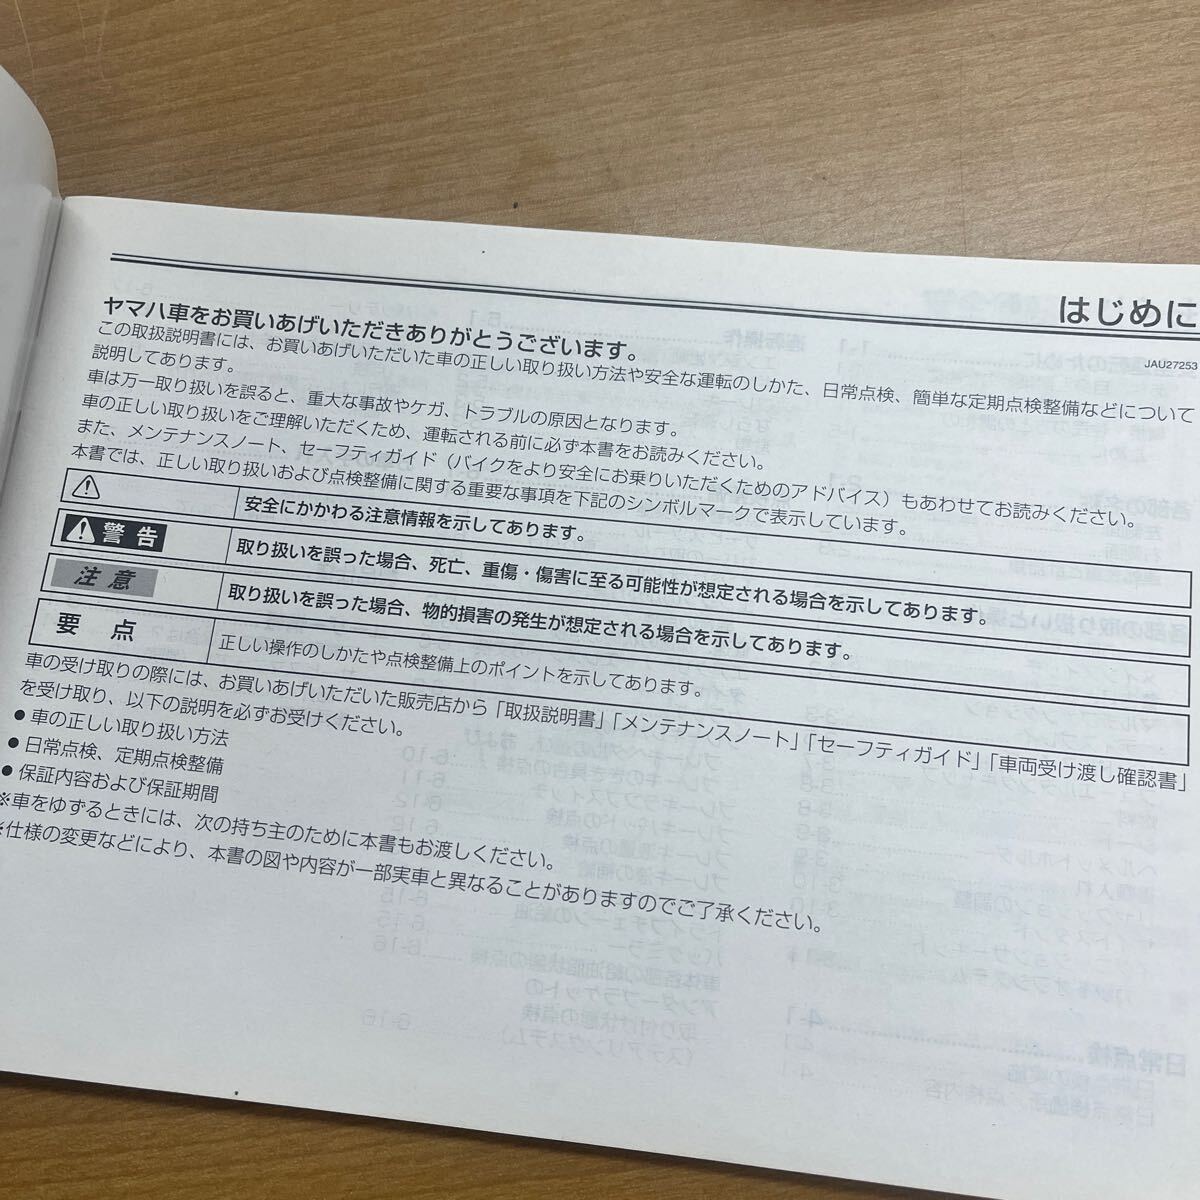 はじめに
JAU27253
ヤマハ車をお買いあげいただきありがとうございます。
この取扱説明書には、お買いあげいただいた車の正しい取り扱い方法や安全な運転のしかた、日常点検、簡単な定期点検整備などについて
説明してあります。
車は万一取り扱いを誤ると、重大な事故やケガ、トラブルの原因となります。
車の正しい取り扱いをご理解いただくため、運転される前に必ず本書をお読みください。
また、メンテナンスノート、セーフティガイド（バイクをより安全にお乗りいただくためのアドバイス）もあわせてお読みください。
本書では、正しい取り扱いおよび点検整備に関する重要な事項を下記のシンボルマークで表示しています。
安全にかかわる注意情報を示してあります。
警告 取り扱いを誤った場合、死亡、重傷・傷害に至る可能性が想定される場合を示してあります。
注意 取り扱いを誤った場合、物的損害の発生が想定される場合を示してあります。
要点 正しい操作のしかたや点検整備上のポイントを示してあります。
車の受け取りの際には、お買いあげいただいた販売店から「取扱説明書」「メンテナンスノート」「セーフティガイド」「車両受け渡し確認書」
を受け取り、以下の説明を必ずお受けください。
●車の正しい取り扱い方法
●日常点検、定期点検整備
●保証内容および保証期間
※車をゆずるときには、次の持ち主のために本書もお渡しください。
※仕様の変更などにより、本書の図や内容が一部実車と異なることがありますのでご了承ください。